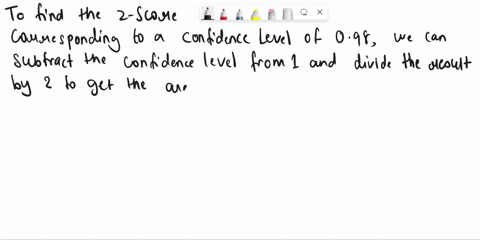 To find the z-score
Corresponding to a confidence level of 0.98, we can
subtract the confidence level from 1 and divide the result
by 2 to get the are